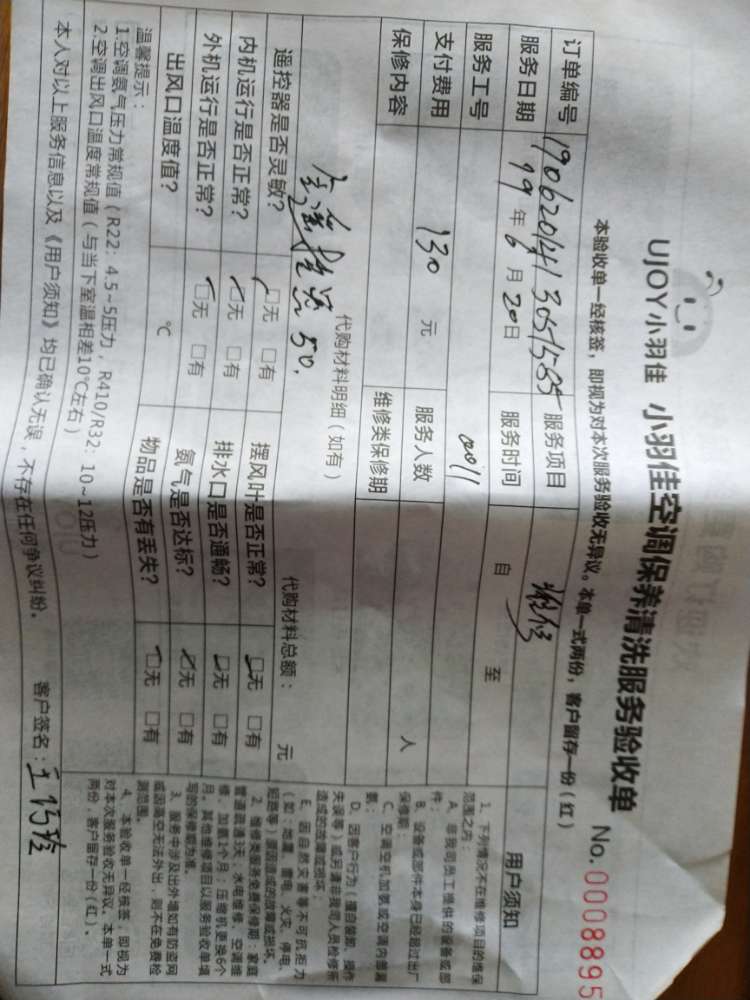 UJOY小羽佳 小羽佳空调保养清洗服务验收单
No. 0008895
本验收单一经核签，即视为对本次服务验收无异议。本单一式两份，客户留存一份（红）
订单编号 服务项目
服务日期 19 年 6 月 20 日 服务时间 自 至
服务工号 0011
支付费用 130 元 服务人数 人
保修内容 维修类保修期
代购材料明细（如有） 代购材料总额： 元
50.
遥控器是否灵敏？ □无 □有 摆风叶是否正常？ □无 □有
内机运行是否正常？ □无 □有 排水口是否通畅？ □无 □有
外机运行是否正常？ □无 □有 氨气是否达标？ □无 □有
出风口温度值？ ℃ 物品是否有丢失？ □无 □有
温馨提示：
1.空调氨气压力常规值（R22：4.5~5压力，R410/R32：10~12压力）
2.空调出风口温度常规值（与当下室温相差10℃左右）
本人对以上服务信息以及《用户须知》均已确认无误，不存在任何争议纠纷。
客户签名：
用户须知
1、下列情况不在维修项目的维保
范围之内：
A、非我司员工提供的设备或部
件；
B、设备或部件本身已经超过出厂
保修期；
C、空调空机加氨或空调内管漏
氨；
D、因客户行为（擅自装卸、操作
失误等）或另请非我司人员检修所
造成的故障或损坏；
E、因自然灾害等不可抗拒力
（如：地震、雷电、火灾、停电、
短路等）原因造成的故障或损坏。
2、维修类服务免费保修期：家庭
管道疏通3天，水电维修、空调维
修、加氨1个月；压缩机更换6个
月。其他维修项目以服务验收单填
写的保修期为准。
3、服务中涉及出外墙如有防盗网
或因高空无法外出，则不在免费检
测范围。
4、本验收单一经核签，即视为
对本次服务验收无异议。本单一式
两份，客户留存一份（红）。